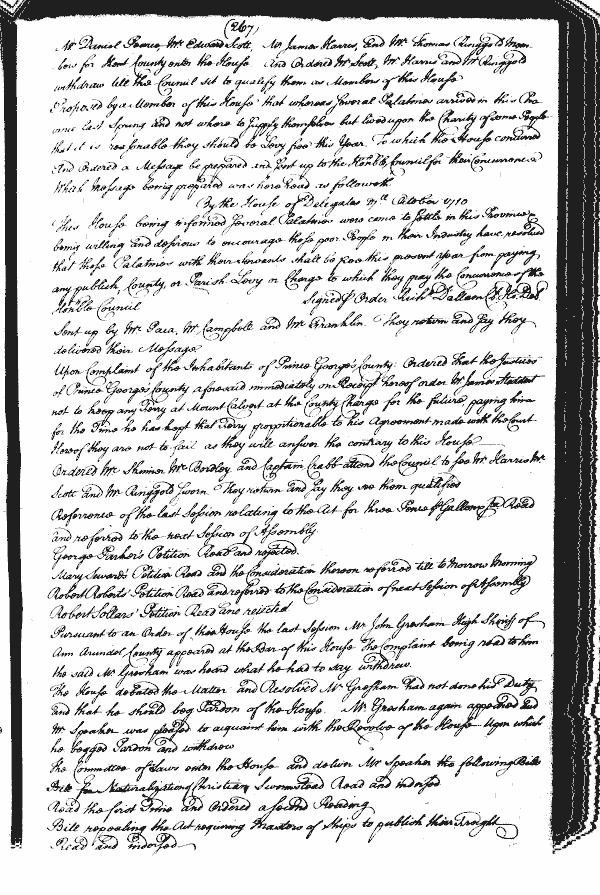 (267)
Mr Daniel Pearce, Mr Edward Scott, Mr James Harris, and Mr Thomas Ringgold Mem-
bers for Kent County enter the House and Ordered Mr Scott, Mr Harris and Mr Ringgold
withdraw till the Council sit to qualify them as Members of this House
Proposed by a Member of this House that whereas Several Palatines arrived in this Pro-
vince last Spring and not where to Supply themselves but lived upon the Charity of some People
that it is reasonable they should be Levy free this Year. To which the House concurred
And Ordered a Message be prepared and sent up to the Honble Council for their Concurrence
Which Message being prepared was here Read as followeth
By the House of Delegates October 1710
This House being informed Several Palatines were come to Settle in this Province
being willing and desirous to encourage those poor People in their Industry have resolved
that those Palatines with their Servants shall be free this present Year from paying
any publick, County, or Parish Levy or Charge to which they pray the Concurrence of the
Honble Council Signed Order Richd Dallam Cl. Ho. Del
Sent up by Mr Paca, Mr Campbell and Mr Franklin They return and say they
delivered their Message
Upon Complaint of the Inhabitants of Prince George's County: Ordered that the Justices
of Prince George's County aforesaid immediately on Receipt hereof order Mr James Haddock
not to keep any Ferry at Mount Calvert at the County Charge for the future paying him
for the Time he has kept that Ferry proportionable to his Agreement made with the Court
Hereof they are not to fail as they will answer the contrary to this House
Ordered Mr Skinner Mr Bordley and Captain Crabb attend the Council to see Mr Harris Mr
Scott and Mr Ringgold Sworn They return and say they see them qualified
Referrence of the last Session relating to the Act for three Pence Gallon Read
and referred to the next Session of Assembly
George Parker's Petition Read and rejected.
Mary Seward's Petition Read and the Consideration thereon referred till to Morrow Morning
Robert Roberts Petition Read and referred to the Consideration of next Session of Assembly
Robert Sollars' Petition Read and rejected
Pursuant to an Order of this House the last Session Mr John Gresham High Sheriff of
Ann Arundel County appeared at the Bar of this House The Complaint being read to him
the said Mr Gresham was heard what he had to say withdrew.
The House debated the Matter and Resolved Mr Gresham had not done his Duty
and that he should beg Pardon of the House. Mr Gresham again appeared and
Mr Speaker was pleased to acquaint him with the Resolve of the House Upon which
he begged Pardon and withdrew
The Committee of Laws enter the House and deliver Mr Speaker the following Bills
Bill for Naturalization Christian Swormstead Read and indorsed
Read the first Time and Ordered a Second Reading
Bill repealing the Act requiring Masters of Ships to publish their Freight
Read and indorsed